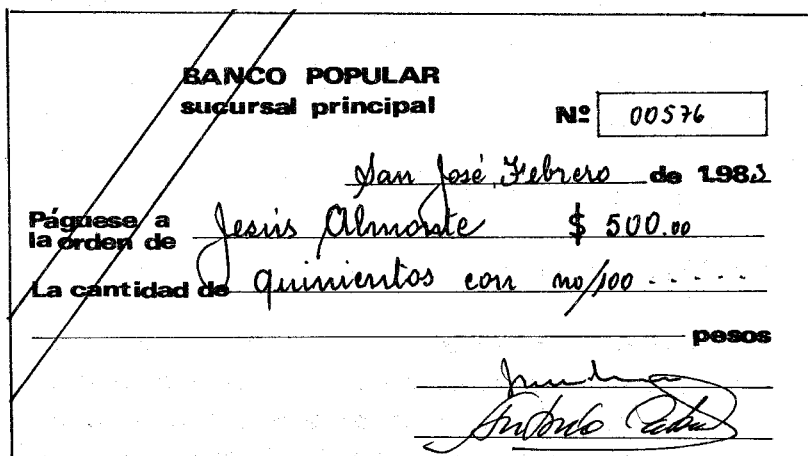 BANCO POPULAR
sucursal principal
Nº 00576
San José, Febrero de 1983
Páguese a la orden de Jesús Almonte $ 500.00
La cantidad de quinientos con no/100 - - - - -
pesos
Antonio